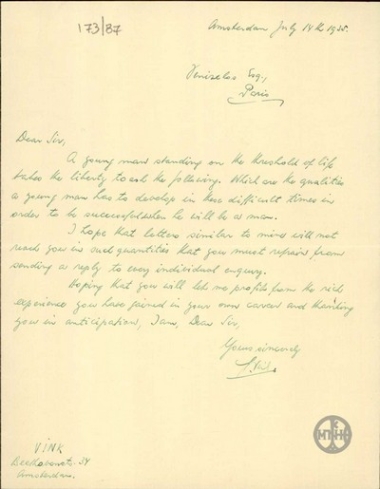 173/87
Amsterdam July 14th 1935.
Venizelos Esq.,
Paris
Dear Sir,
A young man standing on the threshold of life
takes the liberty to ask the following. Which are the qualities
a young man has to develop in these difficult times in
order to be successful when he will be a man.
I hope that letters similar to mine will not
reach you in such quantities that you must refrain from
sending a reply to every individual enquiry.
Hoping that you will let me profit from the rich
experience you have gained in your own career and thanking
you in anticipation, I am, Dear Sir,
Yours sincerely
VINK
34
Amsterdam.